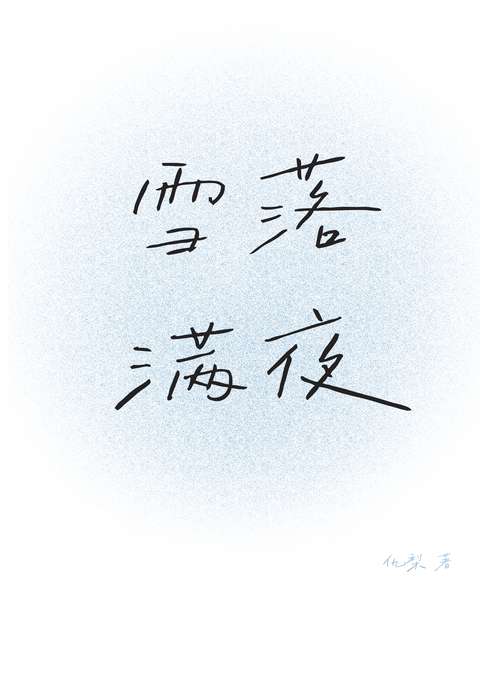 雪落
满夜
仇梨 著